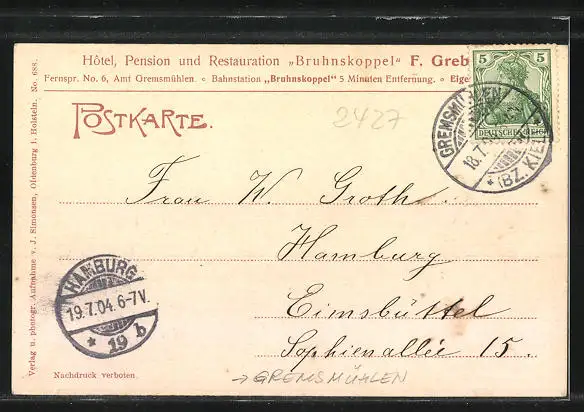 Hôtel, Pension und Restauration „Bruhnskoppel" F. Greb
Fernspr. No. 6, Amt Gremsmühlen. ◦ Bahnstation „Bruhnskoppel" 5 Minuten Entfernung. ◦ Eige
POSTKARTE.
2427
5 5
DEUTSCHES REICH
GREMSMÜHLEN
18.7.04
* (BZ. KIEL)
Frau W. Groth.
Hamburg
Eimsbüttel
Sophienallee 15.
HAMBURG
19.7.04. 6-7V.
* 19 b
→ GREMSMÜHLEN
Nachdruck verboten.
Verlag u. photogr. Aufnahme v. J. Simonsen, Oldenburg i. Holstein. No. 688.